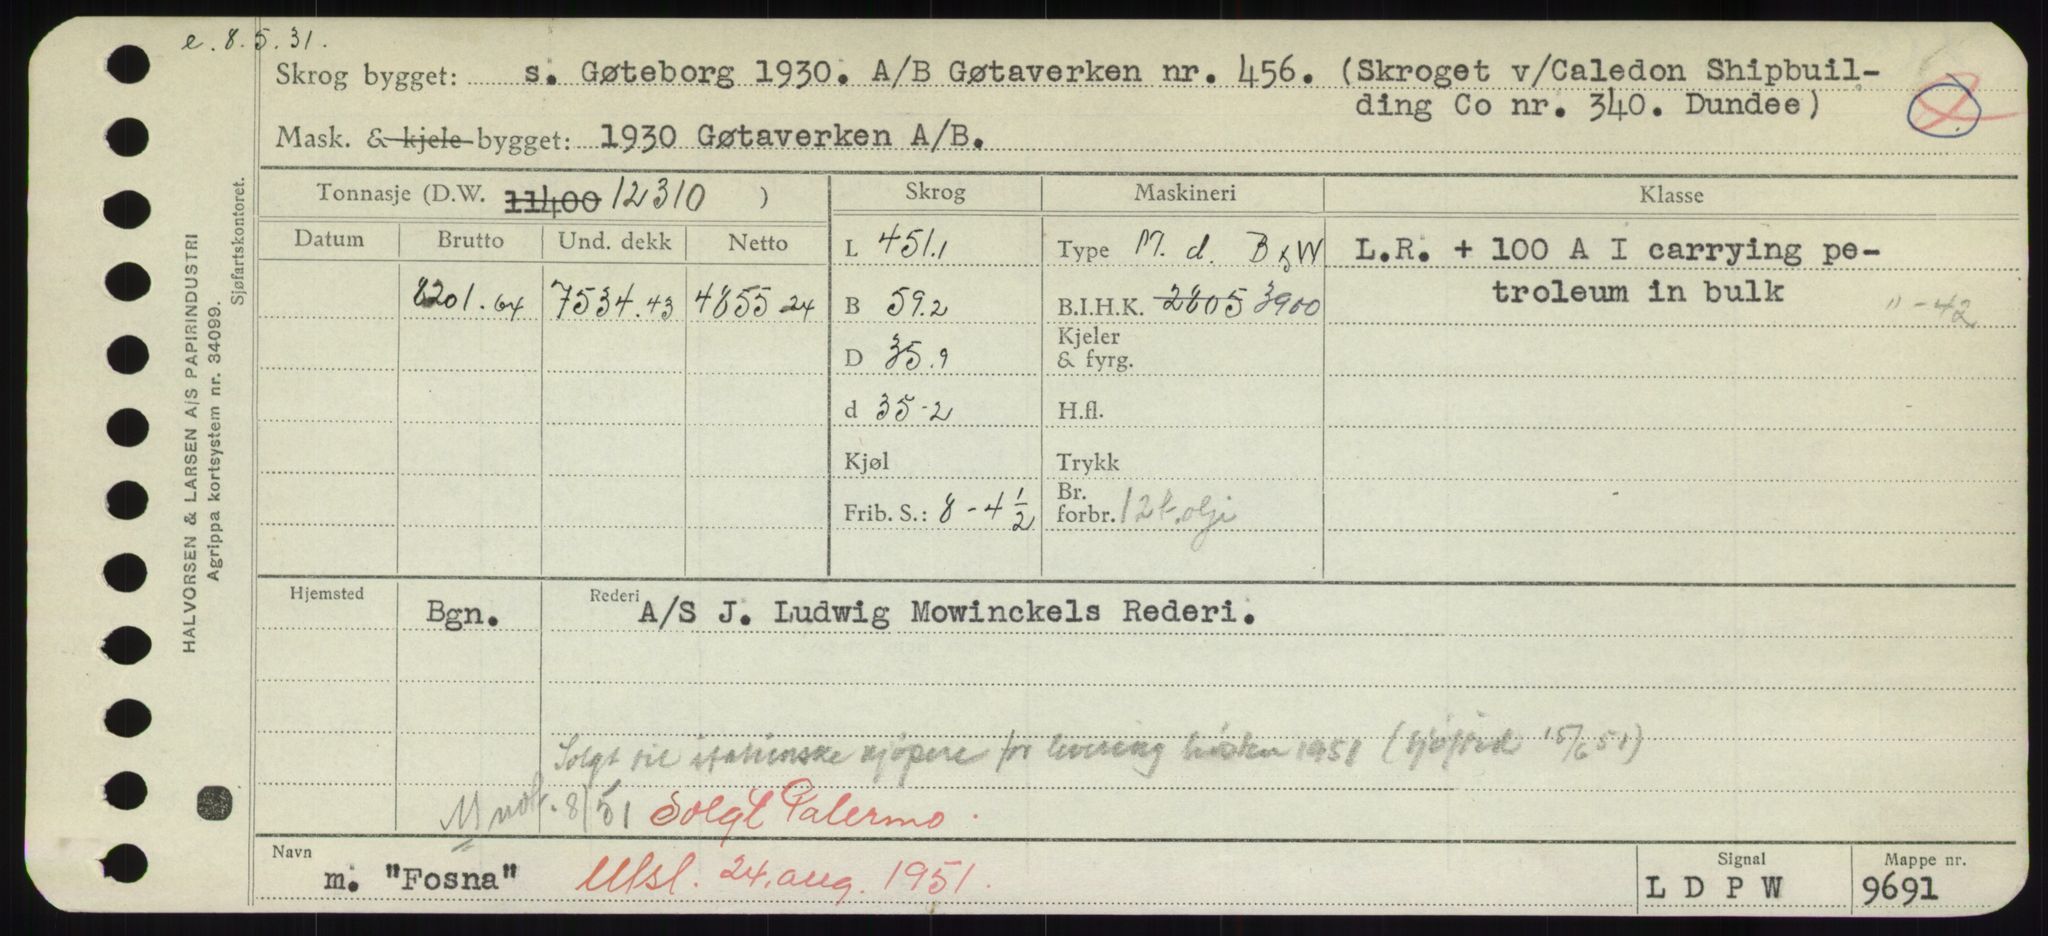 e. 8.5.31.
Skrog bygget: s. Gøteborg 1930. A/B Gøtaverken nr. 456. (Skroget v/Caledon Shipbuil-
ding Co nr. 340. Dundee)
Mask. & kjele bygget: 1930 Gøtaverken A/B.
Tonnasje (D.W. 11400 12310 ) Skrog Maskineri Klasse
Datum Brutto Und. dekk Netto L 451.1 Type M. d. B & W L.R. + 100 A I carrying pe-
8201.64 7534.43 4855 24 B 59.2 B.I.H.K. 2805 3900 troleum in bulk " - 42
D 35.9 Kjeler
& fyrg.
d 35-2 H.fl.
Kjøl Trykk
Frib. S.: 8 - 4 1/2 Br.
forbr. 12 t. olje
Hjemsted Bgn. Rederi A/S J. Ludwig Mowinckels Rederi.
Solgt til italienske kjøpere for levering høsten 1951 (15/6 51)
8/51 Solgt Palermo.
Navn m. "Fosna" Utsl. 24. aug. 1951. Signal L D P W Mappe nr. 9691
HALVORSEN & LARSEN A/S PAPIRINDUSTRI
Agrippa kortsystem nr. 34099.
Sjøfartskontoret.